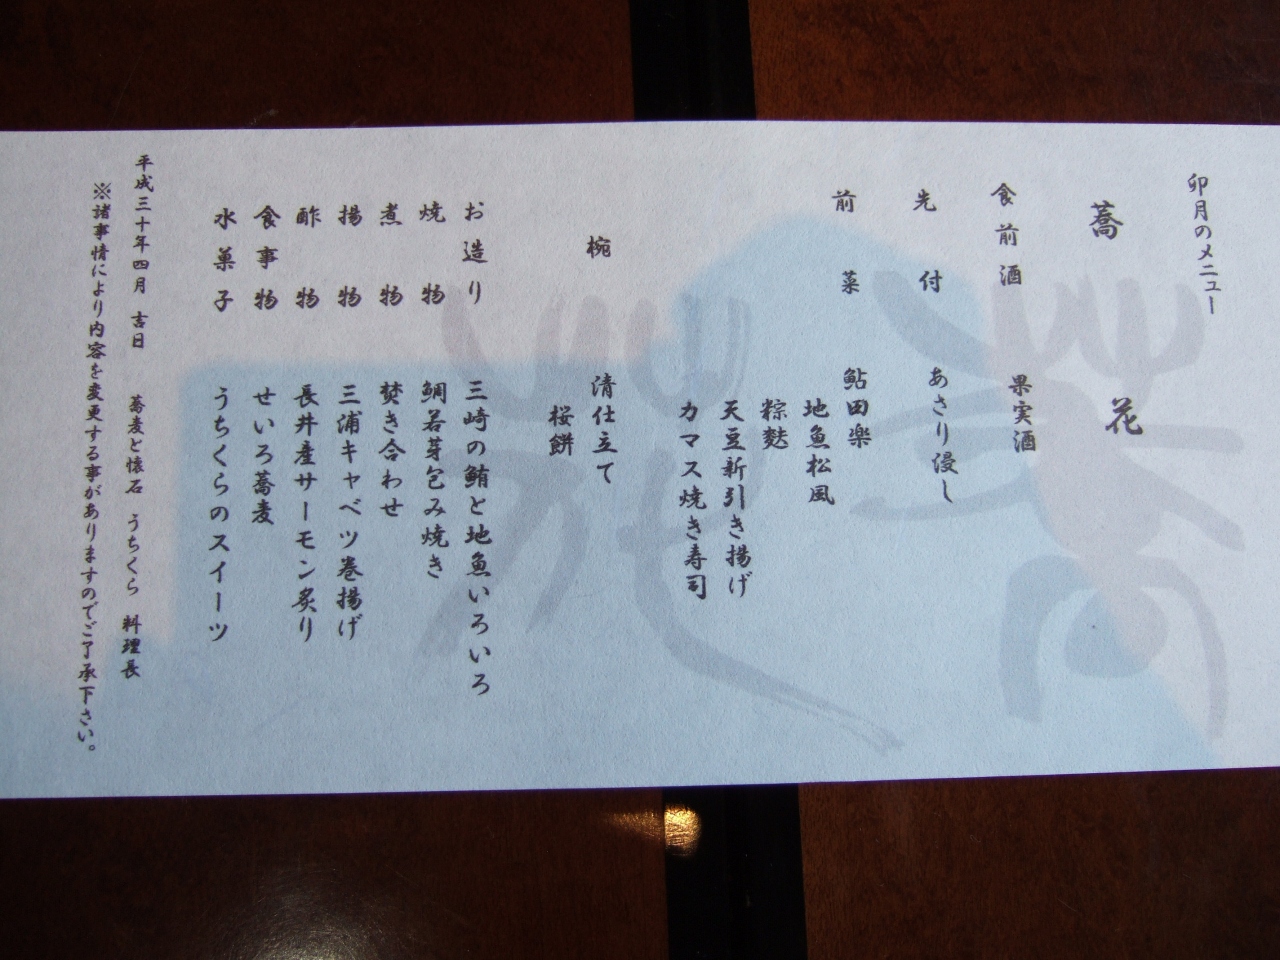 卯月のメニュー
蕎花
食前酒 果実酒
先付 あさり浸し
前菜 鮎田楽
地魚松風
粽麩
天豆新引き揚げ
カマス焼き寿司
椀 清仕立て
桜餅
お造り 三崎の鮪と地魚いろいろ
焼物 鯛若芽包み焼き
煮物 焚き合わせ
揚物 三浦キャベツ巻揚げ
酢物 長井産サーモン炙り
食事物 せいろ蕎麦
水菓子 うちくらのスイーツ
平成三十年四月 吉日 蕎麦と懐石 うちくら 料理長
※諸事情により内容を変更する事がありますのでご了承下さい。